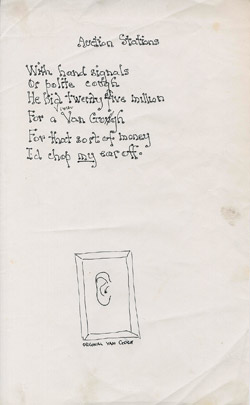 Auction Stations
With hand signals
Or polite cough
He bid twenty five million
For a Van Gough
For that sort of money
I'd chop my ear off.
ORIGINAL VAN GOGH